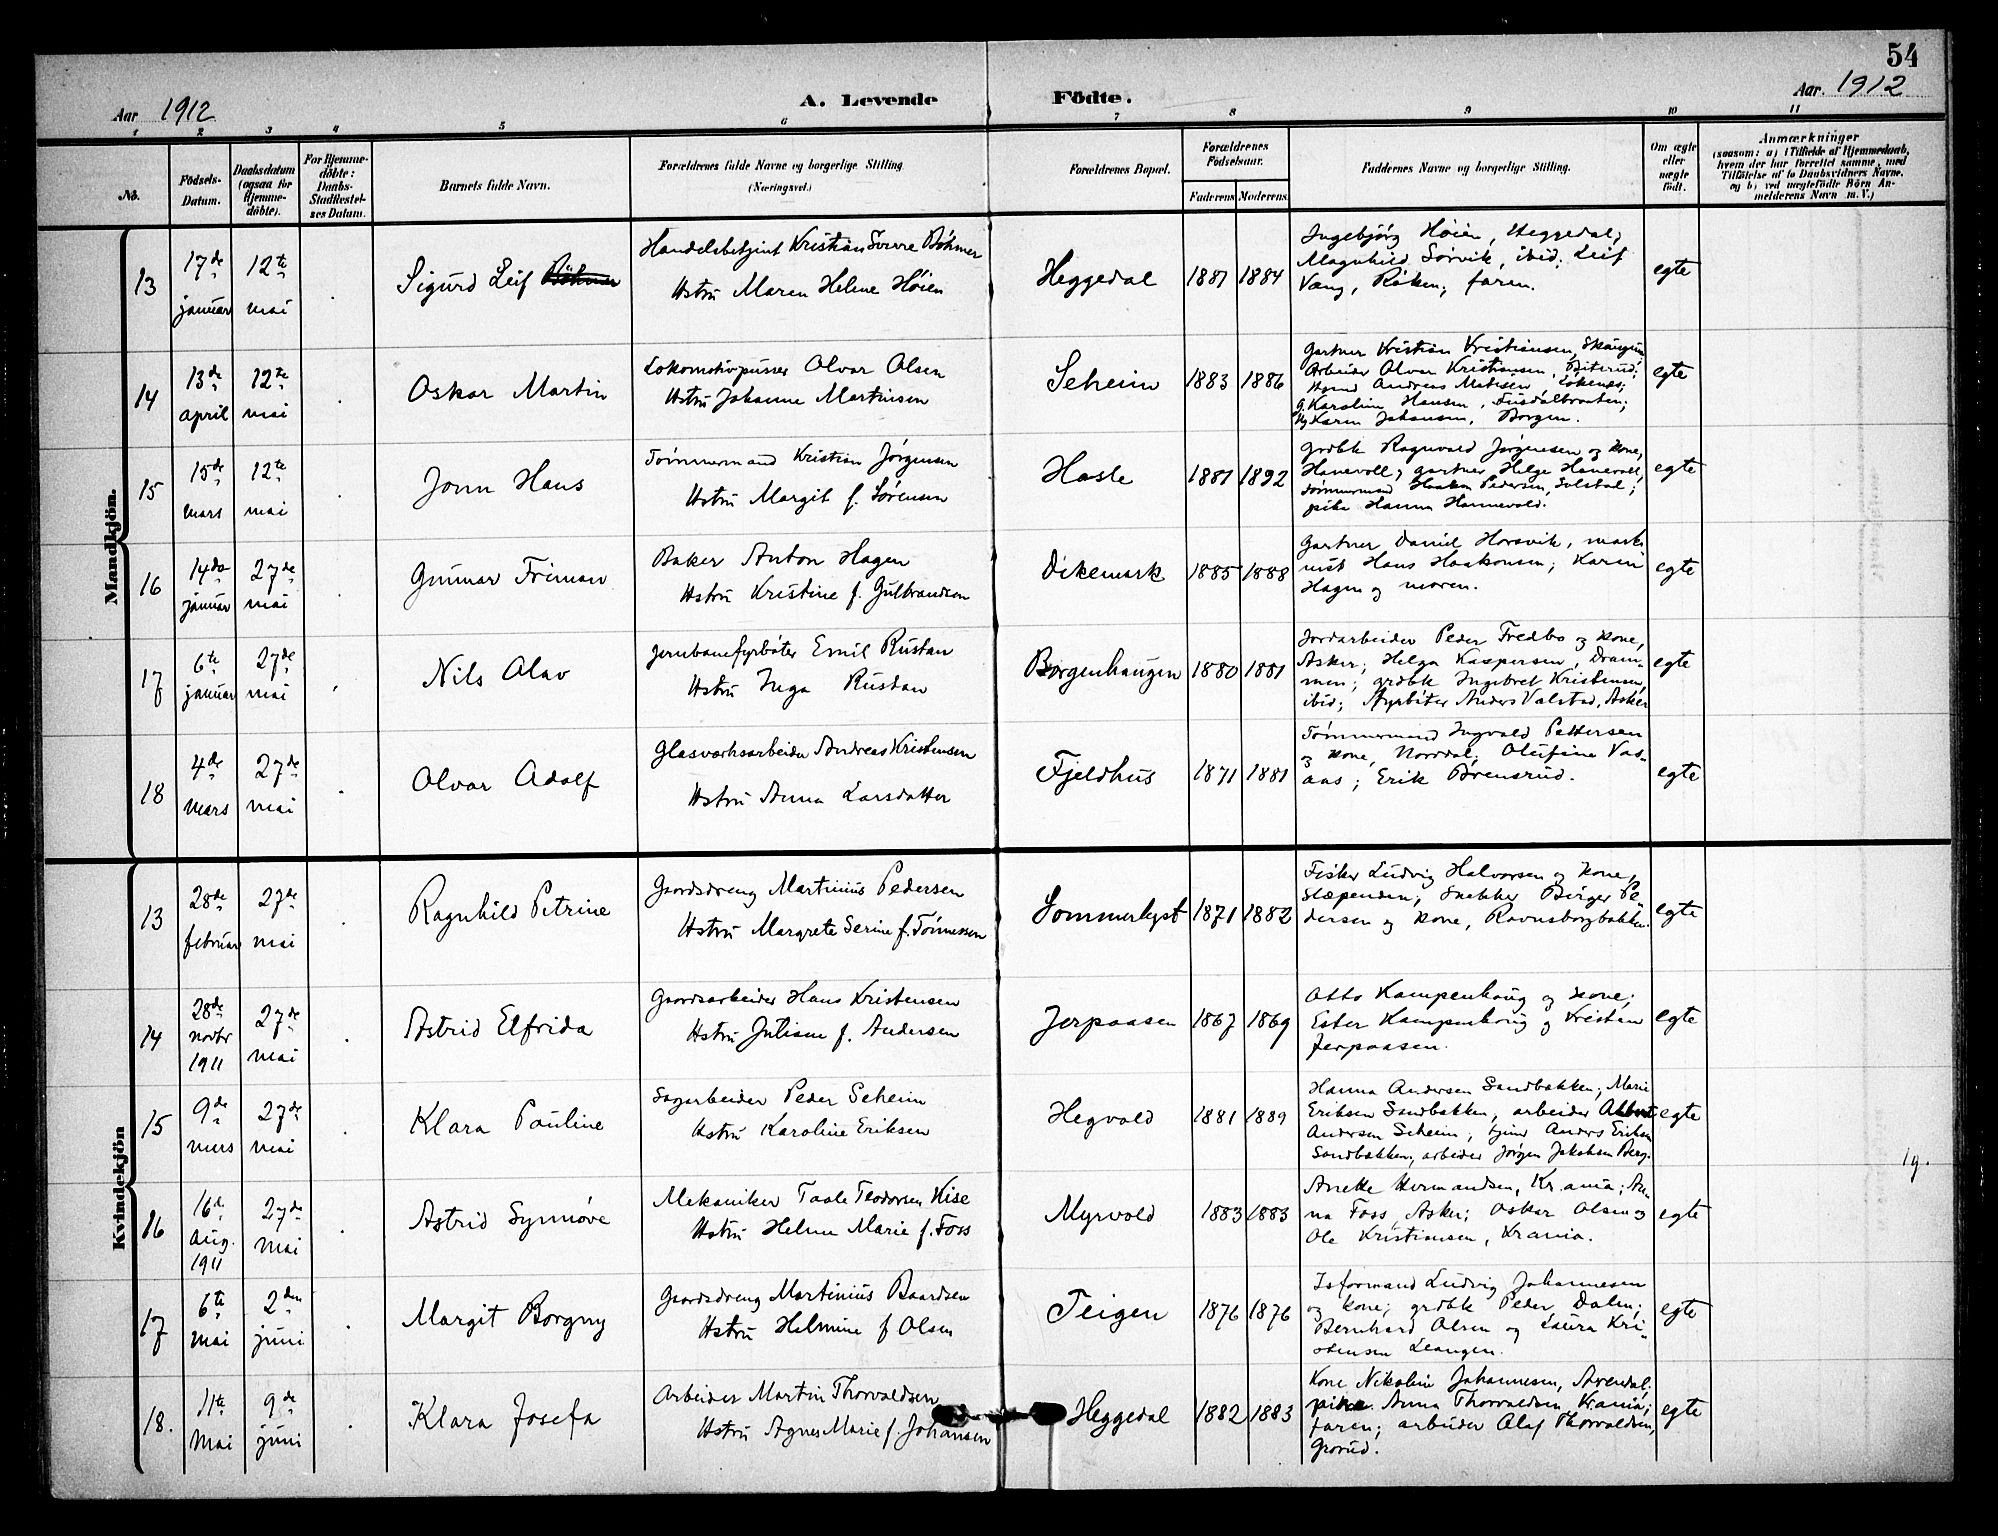 54
Aar 1912 A. Levende Födte. Aar. 1912
1 2 3 4 5 6 7 8 9 10 11
No.
Födsels-Datum.
Daabsdatum (ogsaa for Hjemmedöbte).
For Hjemmedöbte: Daabs-Stadfæstelses Datum.
Barnets fulde Navn.
Forældrenes fulde Navne og borgerlige Stilling
(Næringsvei.)
Forældrenes Bopæl.
Forældrenes Födselsaar.
Faderens Moderens
Faddernes Navne og borgerlige Stilling.
Om ægte eller uægte födt.
Anmærkninger
(saasom: a) i Tilfælde af Hjemmedaab,
hvem der har forrettet samme, med
Tilföielse af to Daabsvidners Navne.
og b) ved uægtefödte Börn An-
melderens Navn m. V.)
Mandkjön.
13 17de januar 12te mai Sigurd Leif Böhmer
Handelsbetjent Kristian Sverre Böhmer
Hstru Maren Helene Höien
Heggedal 1881 1884
Ingebjörg Höien, Heggedal;
Magnhild Sörvik, ibid; Leif
Vang, Röken; faren.
egte
14 13de april 12te mai Oskar Martin
Lokomotivpusser Olvar Olsen
Hstru Johanne Martinsen
Seheim 1883 1886
Gartner Kristian Kristiansen,
Arbeider Olvar Kristiansen,
Andreas
Karoline Hansen,
Karen Johansen, Borgen.
egte
15 15de mars 12te mai Jonn Hans
Tömmermand Kristian Jörgensen
Hstru Margit f. Sörensen
Hasle 1881 1892
grdbk Ragnvald Jörgensen og kone,
Hanevoll; gartner Helge Hanevoll,
tömmermand Haakon Pedersen, Solstad;
pike Hanna Hannevold.
egte
16 14de januar 27de mai Gunnar Friman
Baker Anton Hagen
Hstru Kristine f. Gulbrandsen
Dikemark 1885 1888
Gartner Daniel Horsvik, maski-
nist Hans Haakonsen; Karin
Hagen og moren.
egte
17 6te januar 27de mai Nils Olav
Jernbanefyrböter Emil Rustan
Hstru Inga Rustan
Borgenhaugen 1880 1881
Jordarbeider Peder Fredbo og kone,
Asker; Helga Kaspersen, Dram-
men; grdbk Ingebret Kristensen,
ibid; fyrböter Anders Valstad, Asker
egte
18 4de mars 27de mai Olvar Adolf
Glasverksarbeider Andreas Kristensen
Hstru Anna Larsdatter
Fjeldhus 1871 1881
Tömmermand Ingvald Pettersen
og kone, Norddal; Olufine Vas-
aas; Erik Brensrud.
egte
Kvindekjön
13 28de februar 27de mai Ragnhild Petrine
Gaardsdreng Martinius Pedersen
Hstru Margrete Serine f. Tönnessen
Sommerlyst 1871 1882
Fisker Ludvig Halvorsen og kone,
Slæpenden; Snekker Birger Pe-
dersen og kone, Ravnsborgbakken.
egte
14 28de novbr 1911 27de mai Astrid Elfrida
Gaardsarbeider Hans Kristensen
Hstru Juliane f. Andersen
Jerpaasen 1867 1869
Otto Kampenhaug og kone;
Ester Kampenhaug og Kristian
Jerpaasen.
egte
15 9de mars 27de mai Klara Pauline
Sagarbeider Peder Seheim
Hstru Karoline Eriksen
Hegvold 1881 1889
Hanna Andersen Sandbakken; Marie
Eriksen Sandbakken, arbeider Albert
Andersen Seheim; Anders Eriksen
Sandbakken; arbeider Jörgen Jakobsen Berg.
egte
19.
16 16de aug. 1911 27de mai Astrid Synnöve
Mekaniker Taale Teodorsen Kise
Hstru Helene Marie f. Foss
Myrvold 1883 1883
Anette Hermandsen, Kr.ania; An-
na Foss, Asker; Oskar Olsen og
Ole Kristiansen, Krania.
egte
17 6te mai 2den juni Margit Borgny
Gaardsdreng Martinius Baardsen
Hstru Helmine f Olsen
Teigen 1876 1876
Isformand Ludvig Johannesen
og kone; grdbk Peder Dalen;
Bernhard Olsen og Laura Kri-
stensen Leangen.
egte
18. 11te Mai 9de juni Klara Josefa
Arbeider Martin Thorvaldsen
Hstru Agnes Marie f. Johansen
Heggedal 1882 1883
Kone Nikoline Johannesen, Arendal;
pike Anna Thorvaldsen Krania;
faren; arbeider Olaf Thorvaldsen,
Grorud.
egte